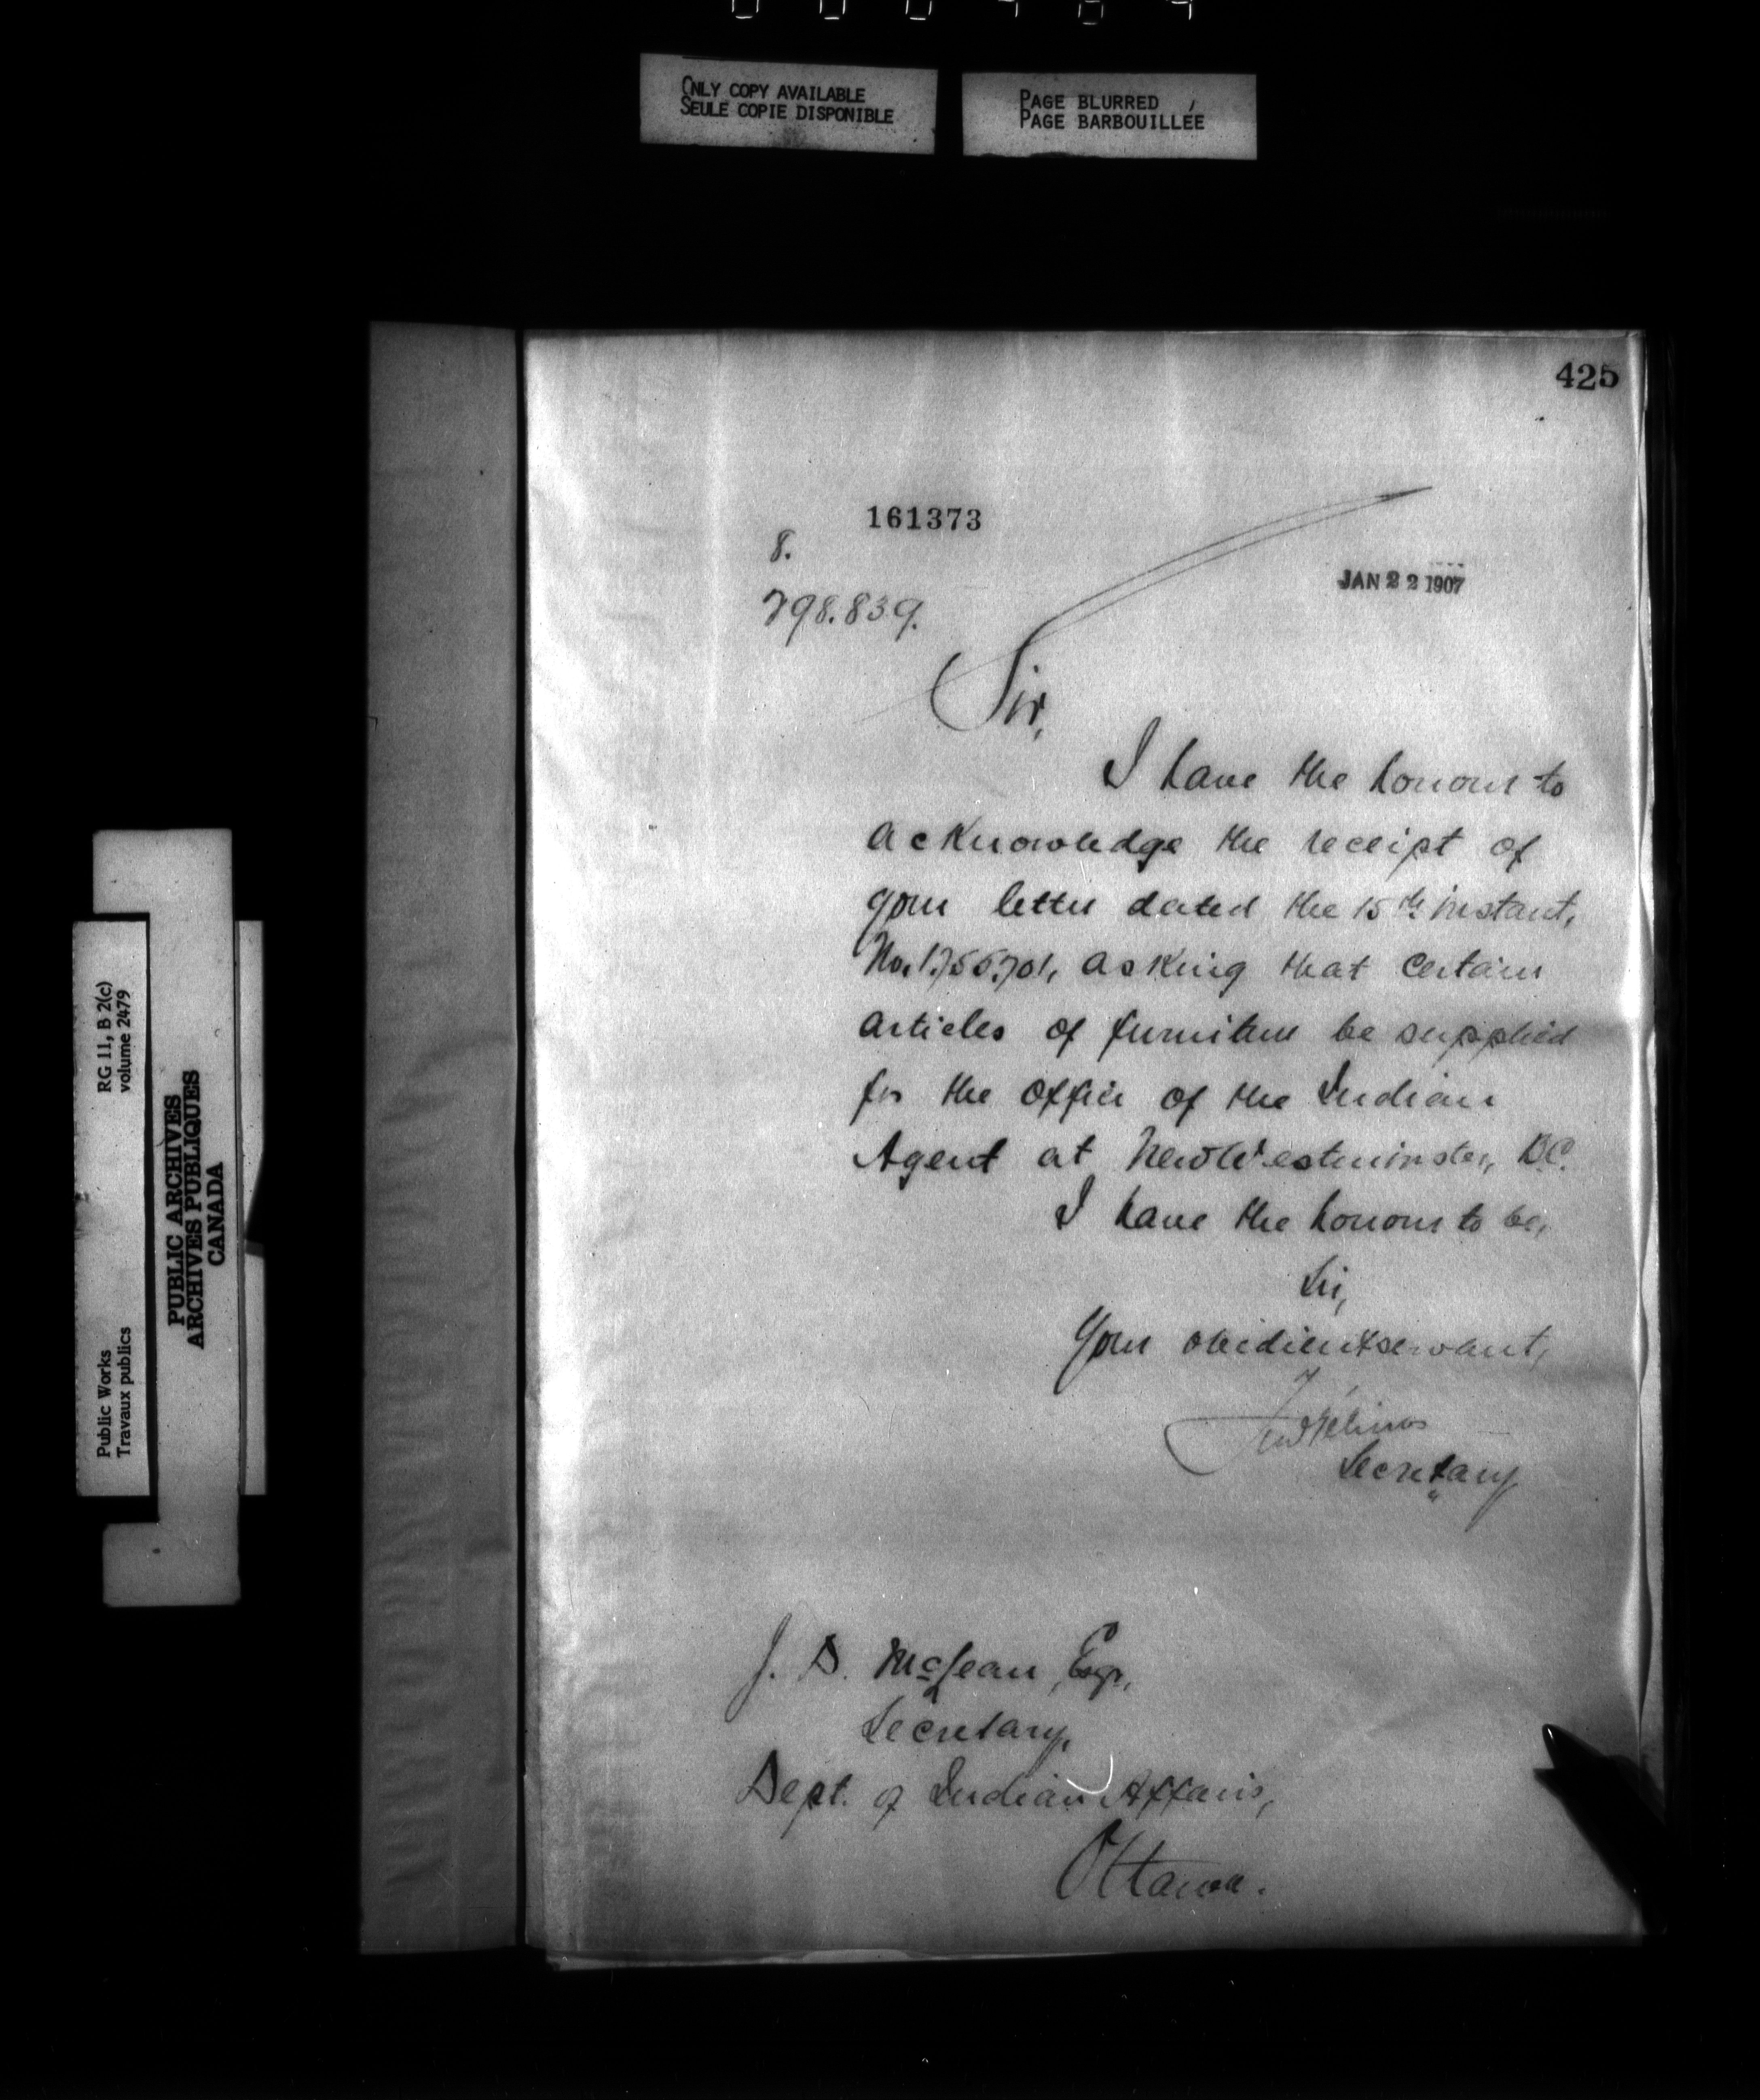 ONLY COPY AVAILABLE
SEULE COPIE DISPONIBLE
PAGE BLURRED
PAGE BARBOUILLÉE
425
161373
8.
298.839.
JAN 22 1907
Sir,
I have the honour to
acknowledge the receipt of
your letter dated the 15th instant,
No. asking that certain
articles of furniture be supplied
for the office of the Indian
Agent at New Westminster, B.C.
I have the honour to be,
Sir,
Your obedient servant,
Secretary
J. D. McLean, Esqr,
Secretary,
Dept. of Indian Affairs,
Ottawa.
RG 11, B 2(c)
volume 2479
Public Works
Travaux publics
PUBLIC ARCHIVES
ARCHIVES PUBLIQUES
CANADA